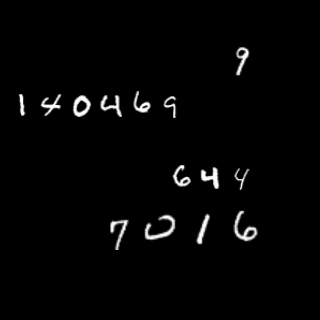 9
140469
644
7016